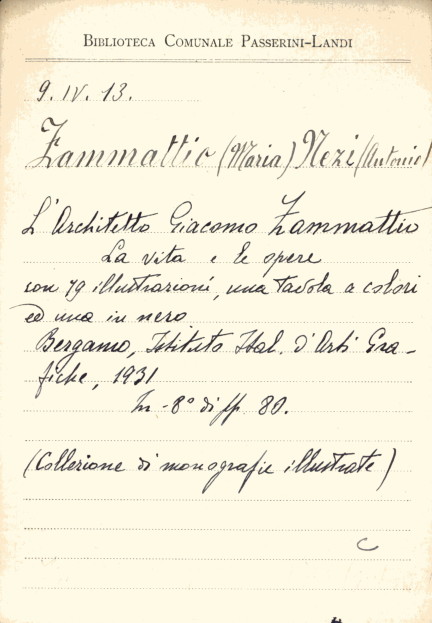 BIBLIOTECA COMUNALE PASSERINI-LANDI
9. IV. 13.
Zammattio (Maria) Nezi (Antonio)
L'Architetto Giacomo Zammattio
La vita e le opere
con 79 illustrazioni, una tavola a colori
ed una in nero
Bergamo, Istituto Ital. d'Arti Gra-
fiche, 1931
In-8° di pp. 80.
(Collezione di monografie illustrate)
C